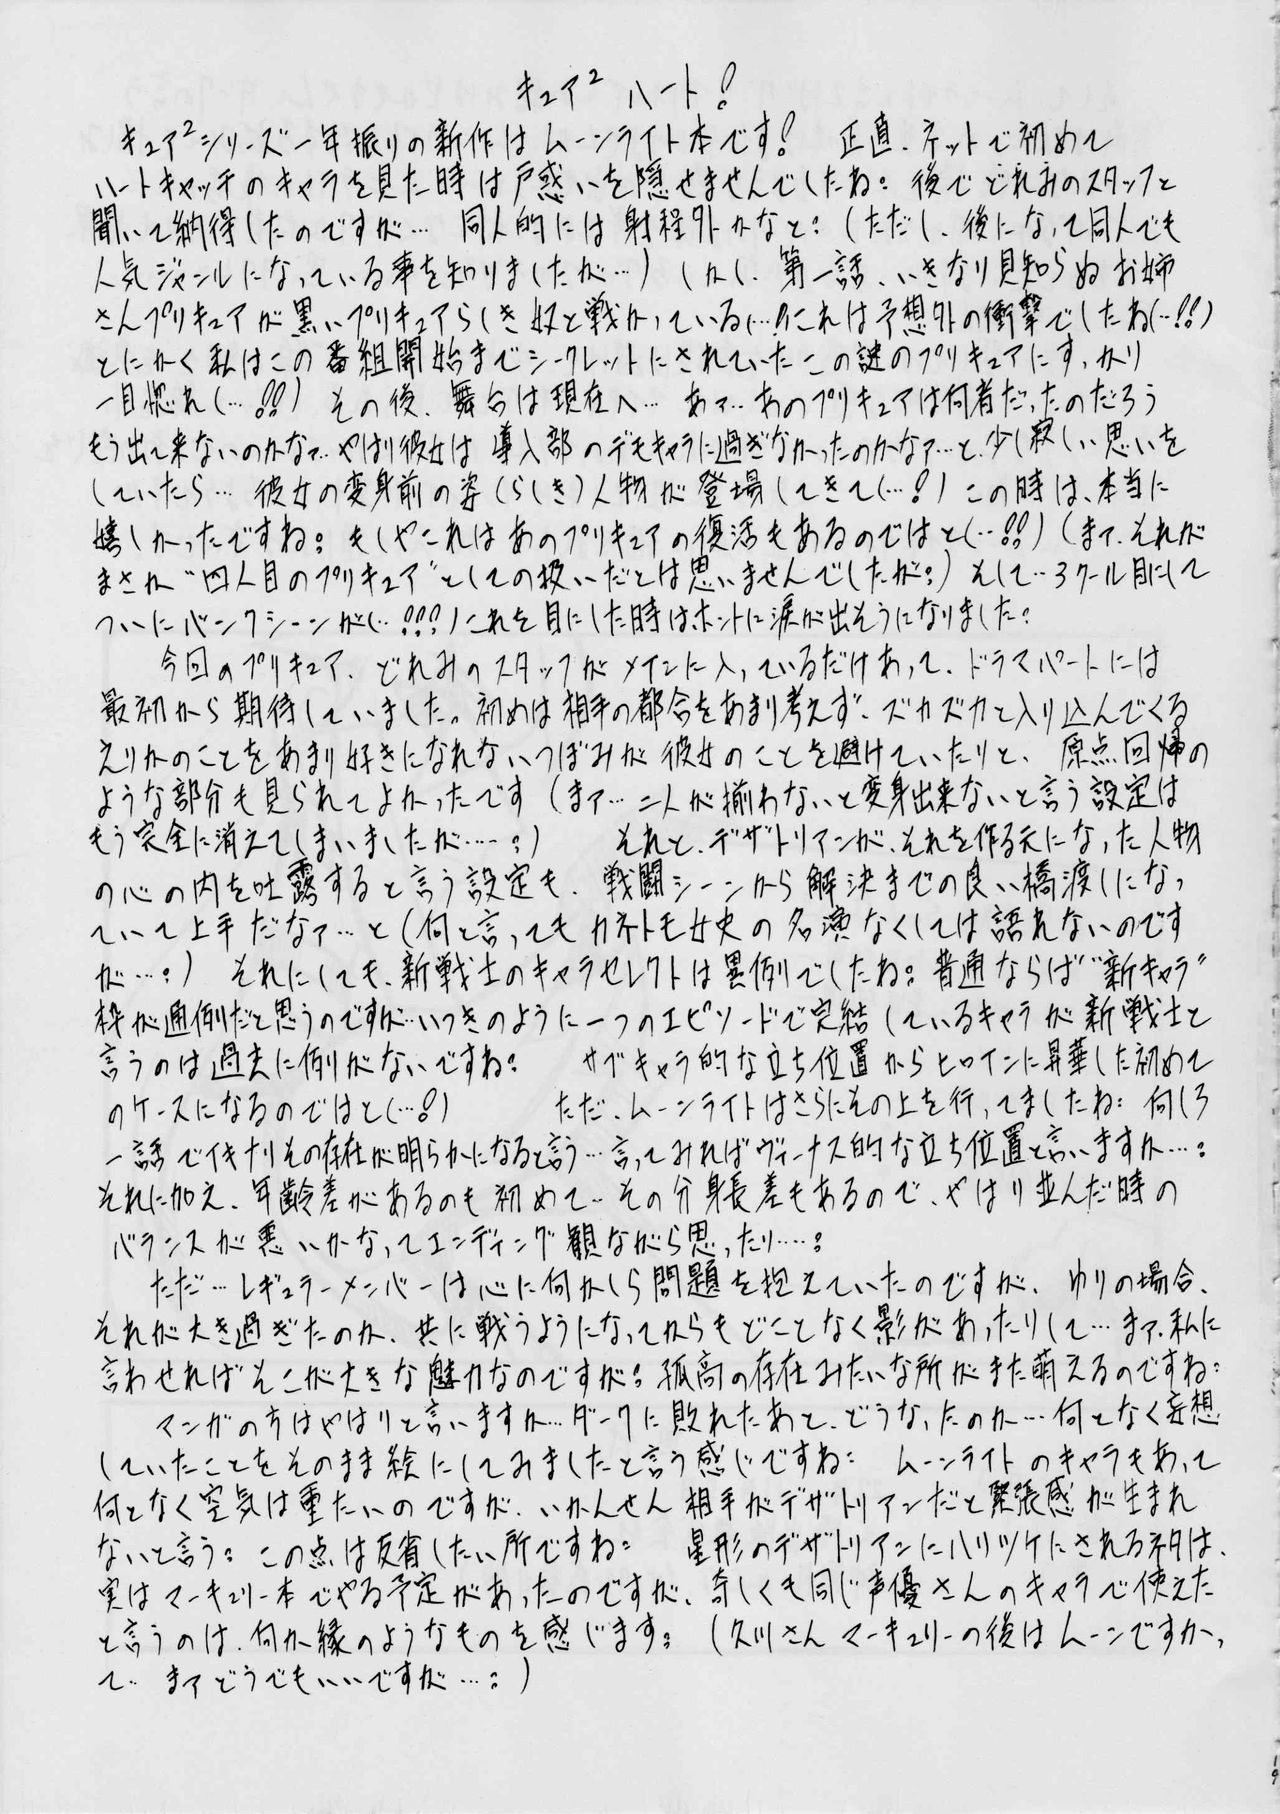 キュア² ハート!
キュア²シリーズ一年振りの新作はムーンライト本です! 正直、ネットで初めて
ハートキャッチのキャラを見た時は戸惑いを隠せませんでしたね。後でどれみのスタッフと
聞いて納得したのですが… 同人的には射程外かなと。(ただし、後になって同人でも
人気ジャンルになっている事を知りましたが…) しかし、第一話、いきなり見知らぬお姉
さんプリキュアが黒いプリキュアらしき奴と戦かっている(…!)これは予想外の衝撃でしたね(…!!)
とにかく私はこの番組開始までシークレットにされていたこの謎のプリキュアにすっかり
一目惚れ(…!!) その後、舞台は現在へ… あァ…あのプリキュアは何者だったのだろう
もう出て来ないのかなァ…やはり彼女は導入部のデモキャラに過ぎなかったのかなァ…と、少し寂しい思いを
していたら… 彼女の変身前の姿(らしき)人物が登場してきて(…!) この時は、本当に
嬉しかったですね。もしやこれはあのプリキュアの復活もあるのではと(…!!) (まァ、それが
まさか"四人目のプリキュア"としての扱いだとは思いませんでしたが。) そして…3クール目にして
ついにバンクシーンが(…!!!)これを目にした時は、ホントに涙が出そうになりました。
今回のプリキュア、どれみのスタッフがメインに入っているだけあって、ドラマパートには
最初から期待していました。初めは相手の都合をあまり考えず、ズカズカと入り込んでくる
えりかのことをあまり好きになれないつぼみが彼女のことを避けていたりと、原点回帰の
ような部分も見られてよかったです (まァ… 二人が揃わないと変身出来ないと言う設定は
もう完全に消えてしまいましたが……。) それと、デザトリアンが、それを作る元になった人物
の心の内を吐露すると言う設定も、戦闘シーンから解決までの良い橋渡しになっ
ていて上手だなァ…と(何と言ってもカネトモ女史の名演なくしては語れないのです
が…。) それにしても、新戦士のキャラセレクトは異例でしたね。普通ならば"新キャラ"
枠が通例だと思うのですが…いつきのように一つのエピソードで完結しているキャラが新戦士と
言うのは過去に例がないですね。 サブキャラ的な立ち位置からヒロインに昇華した初めて
のケースになるのではと(…!) ただ、ムーンライトはさらにその上を行ってましたね。何しろ
一話でイキナリその存在が明らかになると言う…言ってみればヴィーナス的な立ち位置と言いますか…。
それに加え、年齢差があるのも初めて…その分身長差もあるので、やはり並んだ時の
バランスが悪いかなってエンディング観ながら思ったり……。
ただ…レギュラーメンバーは心に何かしら問題を抱えていたのですが、ゆりの場合、
それが大き過ぎたのか、共に戦うようになってからもどことなく影があったりして…まァ、私に
言わせればそこが大きな魅力なのですが。孤高の存在みたいな所がまた萌えるのですね。
マンガの方はやはりと言いますか…ダークに敗れたあと、どうなったのか…何となく妄想
していたことをそのまま絵にしてみましたと言う感じですね。 ムーンライトのキャラもあって
何となく空気は重たいのですが、いかんせん相手がデザトリアンだと緊張感が生まれ
ないと言う。この点は反省したい所ですね。 星形のデザトリアンにハリツケにされるネタは、
実はマーキュリー本でやる予定があったのですが、奇しくも同じ声優さんのキャラで使えた
と言うのは、何か縁のようなものを感じます。 (久川さんマーキュリーの後はムーンですかっ
て… まァどうでもいいですが…。)
19